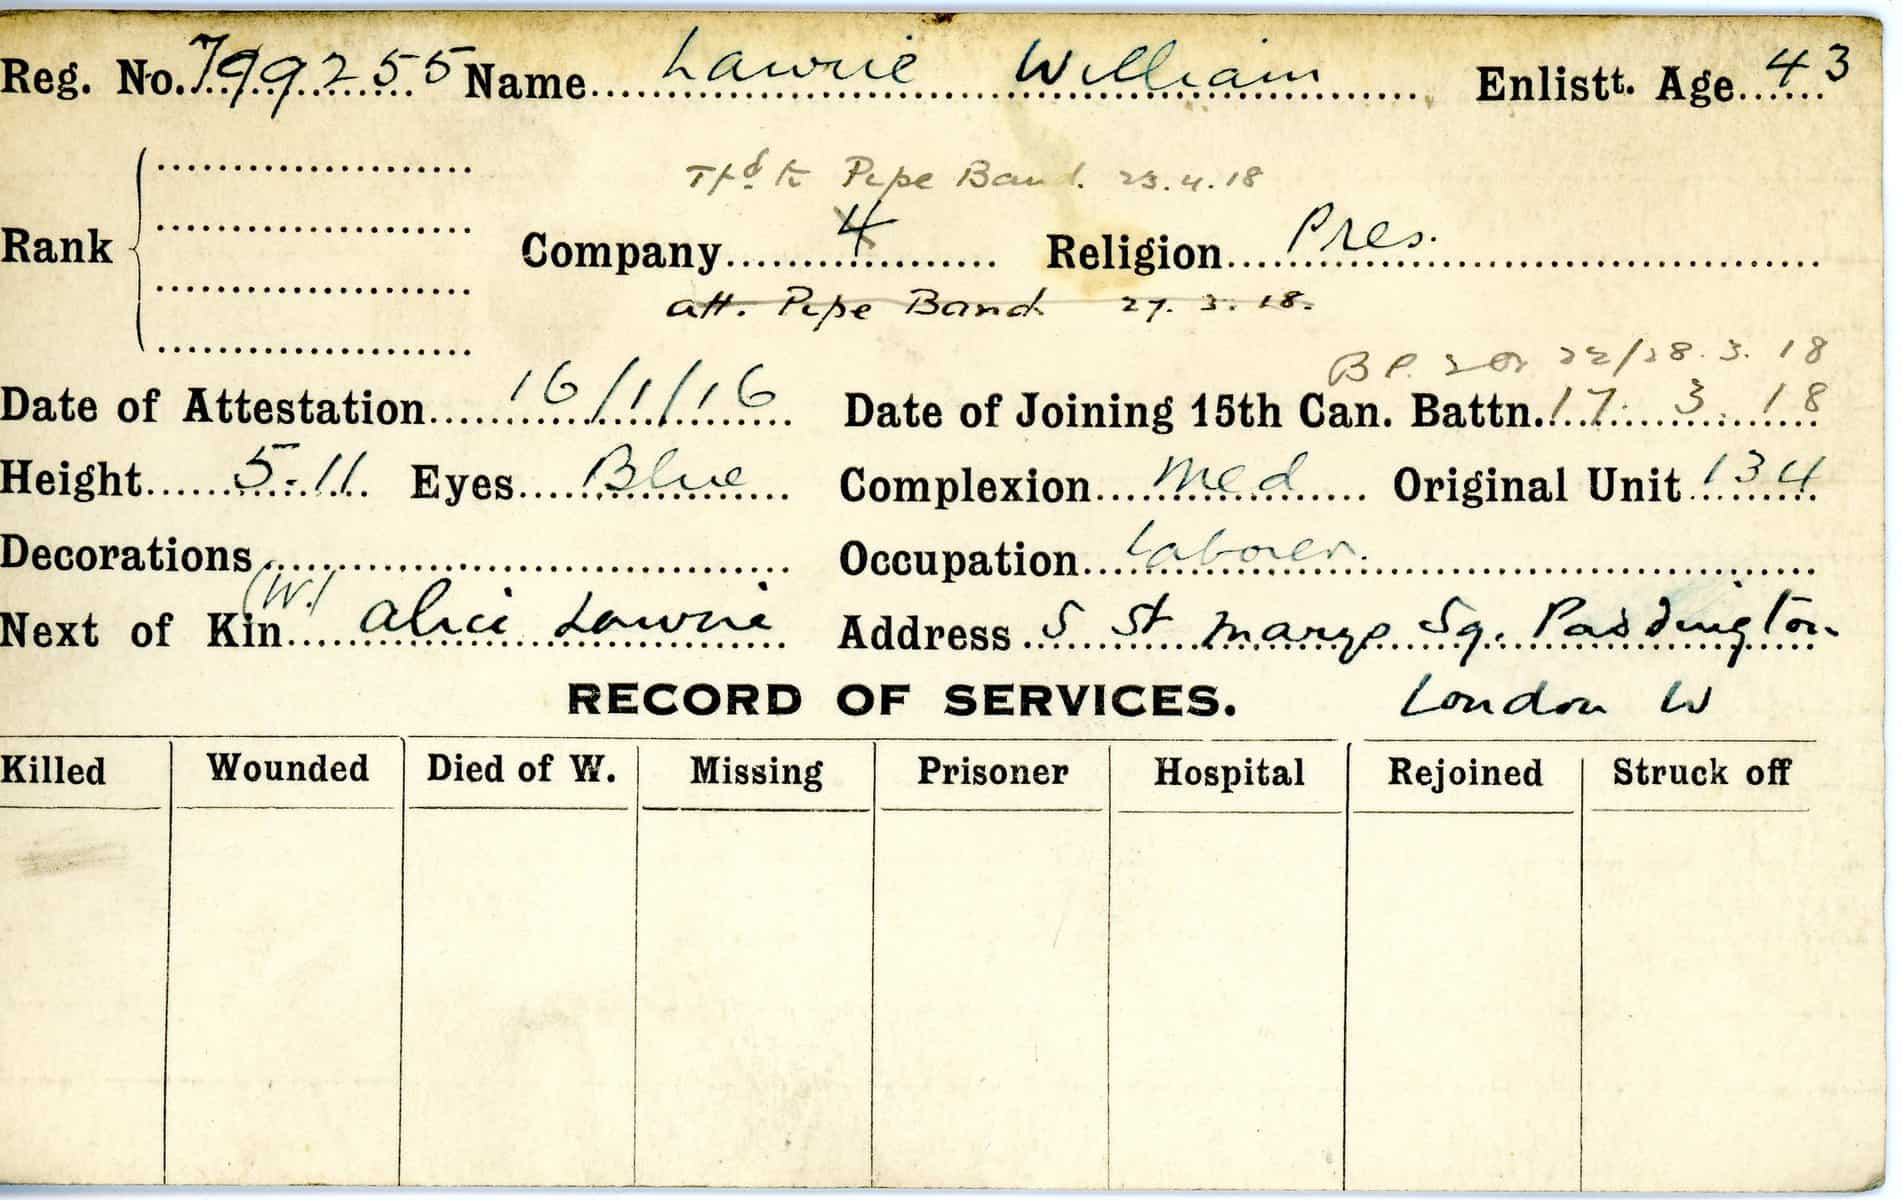 Reg. No. 799255 Name Lawrie William Enlistt. Age 43
Tfd to Pipe Band. 23.4.18
Rank Company 4 Religion Pres.
att. Pipe Band 27.3.18.
22/28.3.18
Date of Attestation 16/1/16 Date of Joining 15th Can. Battn. 17.3.18
Height 5-11 Eyes Blue Complexion Med Original Unit 134
Decorations Occupation Laborer.
(W.)
Next of Kin Alice Lawrie Address 5 St Marys Sq. Paddington
RECORD OF SERVICES. London W
Killed Wounded Died of W. Missing Prisoner Hospital Rejoined Struck off